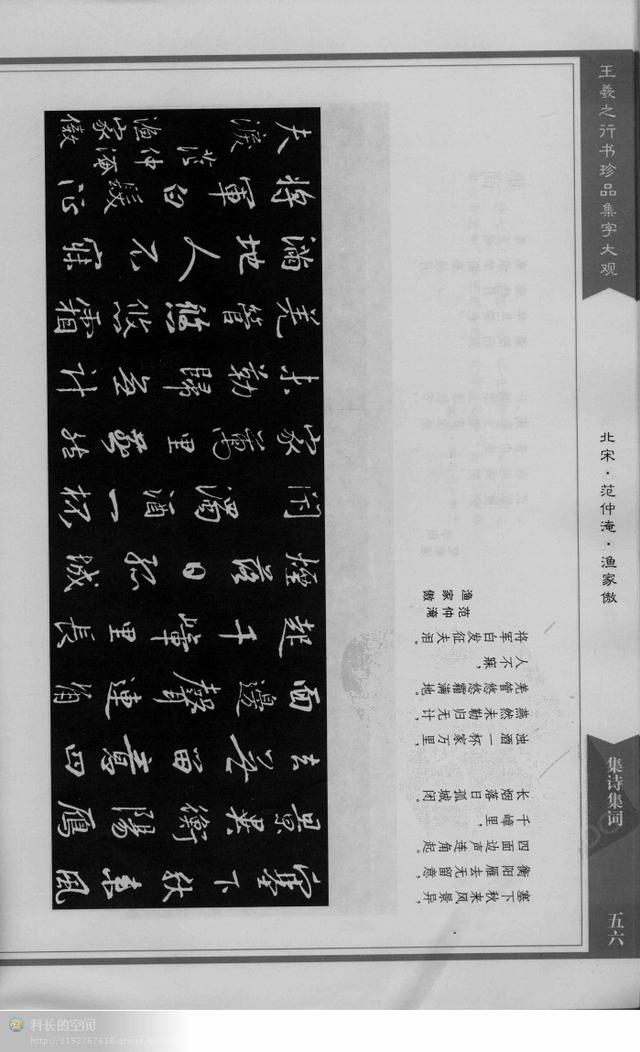 王羲之行书珍品集字大观
北宋·范仲淹·渔家傲
集诗集词
五六
渔家傲
范仲淹
塞下秋来风景异，
衡阳雁去无留意，
四面边声连角起。
千嶂里，
长烟落日孤城闭。
浊酒一杯家万里，
燕然未勒归无计，
羌管悠悠霜满地。
人不寐，
将军白发征夫泪。
塞下秋来風
景異衡陽雁
去無留意四
面邊聲連角
起千嶂里長
煙落日孤城
閉濁酒一杯
家萬里燕然
未勒歸無計
羌管悠悠霜
滿地人不寐
將軍白髮征
夫淚
范仲淹
漁家傲
科长的空间